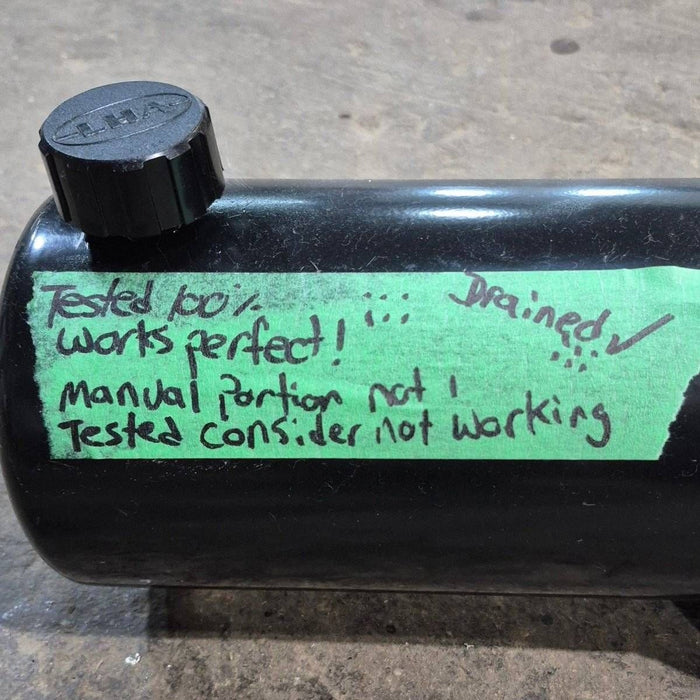 LHA
Tested 100%
works perfect!
Drained ✓
Manual portion not !
Tested consider not working